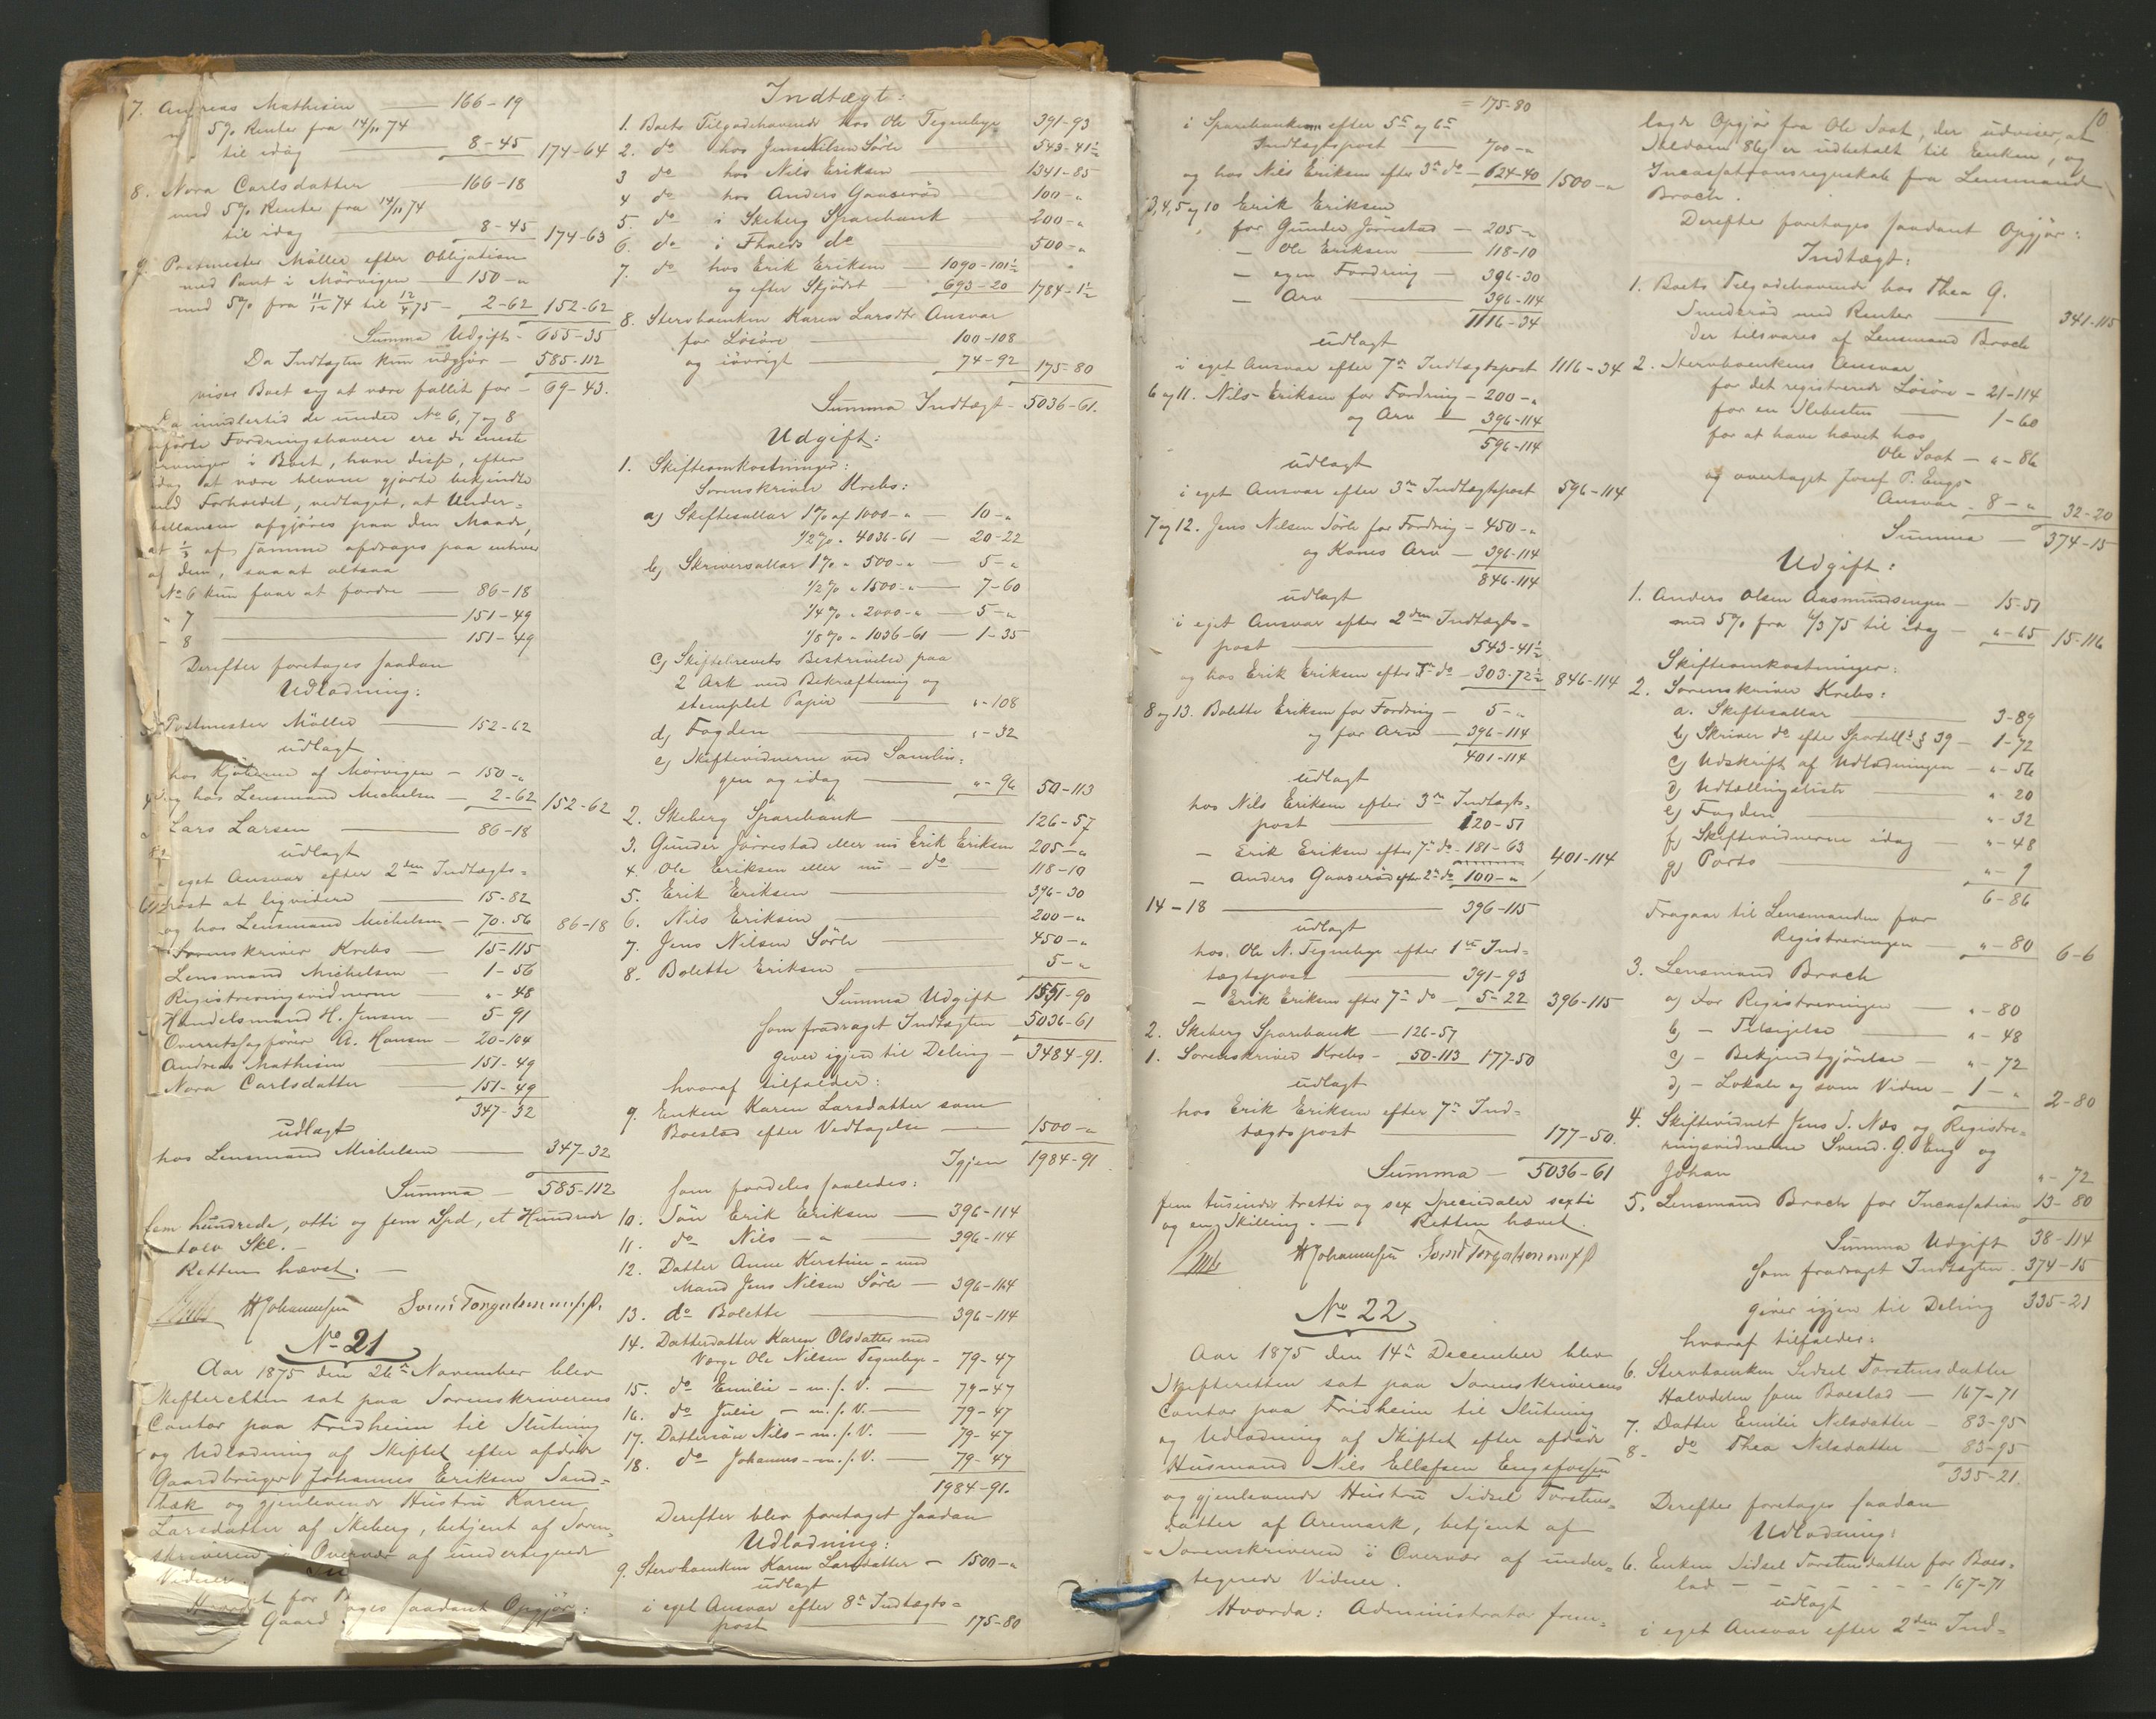 7. Andreas Mathisen — 166-19
m/ 5% Renter fra 14/11 74
til idag — 8-45 174-64
8. Nora Carlsdatter — 166-18
med 5% Renter fra 14/11 74
til idag — 8-45 174-63
9. Postmester Möller efter Obligation
med Pant i Mörvigen — 150-"
med 5% fra 11/12 74 til 12/4 75 — 2-62 152-62
Summa Udgift - 655-35
Da Indtægten kun udgjør — 585-112
vises Boet sig at være fallit for — 69-43.
Da imidlertid de under No 6, 7 og 8
anførte Fordringshavere ere de eneste
arvinger i Boet, have disse, efter
idag at være blevne gjorte bekjendte
med Forholdet, vedtaget, at Under-
ballancen afgjøres paa den Maade,
at 1/3 af samme afdrages paa enhver
af dem, saa at altsaa
No 6 kun faar at fordre — 86-18
" 7 — 151-49
- 8 — 151-49
Derefter foretages saadan
Udlodning:
Postmester Möller — 152-62
udlagt
hos Kjøberne af Mörvigen — 150-"
og hos Lensmand Michelsen — 2-62 152-62
Lars Larsen — 86-18
udlagt
i eget Ansvar efter 2den Indtægts-
post at liqvidere — 15-82
og hos Lensmand Michelsen — 70-56 86-18
Sorenskriver Krebs — 15-115
Lensmand Michelsen — 1-56
Registreringsvidnerne — "-48
Handelsmand H. Jensen — 5-91
Overretssagfører A. Hansen — 20-104
Andreas Mathisen — 151-49
Nora Carlsdatter — 151-49
347-32
udlagt
hos Lensmand Michelsen — 347-32
Summa — 585-112
fem hundrede, otti og fem Spd, et Hundrede
tolv Skl. —
Retten hævet. —
Krebs HJohannesen Svend Torgalsen m.f.P.
No 21
Aar 1875 den 26de November blev
Skifteretten sat paa Sorenskriverens
Contor paa Fridheim til Slutning
og Udlodning af Skiftet efter afdøde
Gaardbruger Johannes Eriksen Sand-
bæk og gjenlevende Hustru Karen
Larsdatter af Skeberg, betjent af Soren-
skriveren i Overvær af undertegnede
Vidner.
saadant Opgjør:
Indtægt:
1. Boets Tilgodehavende hos Ole Tegneby 391-93
2. do hos Jens Nilsen Sörli — 543-41½
3 do hos Nils Eriksen — 1341-85
4 do hos Anders Gaaserød 100-"
5. do i Skeberg Sparebank — 200-"
6. do i Thveds do — 500-"
7. do hos Erik Eriksen — 1090-101½
og efter Skjødet — 693-20 1784-1½
8. Stervboenken Karen Larsdtr Ansvar
for Løsøre — 100-108
og iøvrigt — 74-92 175-80
Summa Indtægt - 5036-61.
Udgift:
1. Skifteomkostninger:
Sorenskriver Krebs:
a) Skiftesallar 1% af 1000-" — 10-"
1/2% " 4036-61 — 20-22
b) Skriversallar 1% " 500-" — 5-"
1/2% " 1500-" — 7-60
1/4% " 2000-" — 5-"
1/8% " 1036-61 — 1-35
c) Skiftebrevets Beskrivelse paa
2 Ark med Bekræftning og
stemplet Papir — "-108
d) Fogden — "-32
e) Skiftevidnerne ved Samlin-
gen og idag — "-96 50-113
2. Skeberg Sparebank — 126-57
3. Gunder Jörrestad eller nu Erik Eriksen 205-"
4. Ole Eriksen eller nu - do — 118-10
5. Erik Eriksen — 396-30
6. Nils Eriksen — 200-"
7. Jens Nilsen Sörli — 450-"
8. Bolette Eriksen — 5-"
Summa Udgift 1551-90
som fradraget Indtægten — 5036-61
giver igjen til Deling — 3484-91.
hvoraf tilfalder:
9. Enken Karen Larsdatter som
Boeslod efter Vedtagelse — 1500-"
Igjen 1984-91
som fordeles saaledes:
10. Søn Erik Eriksen — 396-114
11. do Nils - " — 396-114
12. Datter Anne Kirstine - med
Mand Jens Nilsen Sörli — 396-114
13. do Bolette — 396-114
14. Datterdatter Karen Olsdatter med
Værge Ole Nilsen Tegneby — 79-47
15. do Emilie - m.s.V. — 79-47
16. do Julie - m.s.V. — 79-47
17. Dattersøn Nils - m.s.V. — 79-47
18. do Johannes - m.s.V. — 79-47
1984-91.
Derefter blev foretaget saadan
Udlodning:
9. Stervboenken Karen Larsdatter — 1500-"
udlagt
i eget Ansvar efter 8de Indtægts-
post — 175-80
= 175-80
i Sparebanken efter 5te og 6te
Indtægtspost — 700-"
og hos Nils Eriksen efter 3die do — 624-40 1500-"
3, 4, 5 og 10 Erik Eriksen
for Gunder Jörrestad — 205-"
- Ole Eriksen — 118-10
- egen Fordring — 396-30
- Arv — 396-114
1116-34
udlagt
i eget Ansvar efter 7de Indtægtspost 1116-34
6 og 11. Nils Eriksen for Fordring — 200-"
og Arv — 396-114
596-114
udlagt
i eget Ansvar efter 3die Indtægtspost 596-114
7 og 12. Jens Nilsen Sörli for Fordring — 450-"
og Kones Arv — 396-114
846-114
udlagt
i eget Ansvar efter 2den Indtægts-
post — 543-41½
og hos Erik Eriksen efter 7de do — 303-72½ 846-114
8 og 13. Bolette Eriksen for Fordring — 5-"
og for Arv — 396-114
401-114
udlagt
hos Nils Eriksen efter 3die Indtægts-
post — 120-51
- Erik Eriksen efter 7de do - 181-63
- Anders Gaaserød efter 2de do 100-" 401-114
14-18 — 396-115
udlagt
hos Ole N. Tegneby efter 1ste Ind-
tægtspost — 391-93
- Erik Eriksen efter 7de do — 5-22 396-115
2. Skeberg Sparebank — 126-57
1. Sorenskriver Krebs — 50-113 177-50
udlagt
hos Erik Eriksen efter 7de Ind-
tægtspost — 177-50.
Summa — 5036-61
fem tusinde tretti og sex Speciedaler sexti
og en Skilling. — Retten hævet.
Krebs HJohannesen Svend Torgalsen m.f.P.
No 22
Aar 1875 den 14de December blev
Skifteretten sat paa Sorenskriverens
Contor paa Fridheim til Slutning
og Udlodning af Skiftet efter afdøde
Husmand Nils Ellefsen Engsfossen
og gjenlevende Hustru Sidsel Torstens-
datter af Aremark, betjent af
Sorenskriveren i Overvær af under-
tegnede Vidner.
Hvorda: Administrator frem-
10
lagde Opgjør fra Ole Saat, der udviser, at
Saldoen 86 s er udbetalt til Enken, og
Incassationsregnskab fra Lensmand
Broch.
Derefter foretages saadant Opgjør:
Indtægt:
1. Boets Tilgodehavende hos Thea G.
Sunderød med Renter — 341-115
der tilsvares af Lensmand Broch
2. Stervboenkens Ansvar
for det registrerede Løsøre — 21-114
for en Slibesten — 1-60
for at have hævet hos
Ole Saat — "-86
og overtaget Josef P. Engs
Ansvar — 8-" 32-20
Summa — 374-15
Udgift:
1. Anders Olsen Aasmundsengen — 15-51
med 5% fra 6/3 75 til idag — "-65 15-116
Skifteomkostninger:
2. Sorenskriver Krebs:
a. Skiftesallar — 3-89
b) Skriver do efter Sportell. § 39 — 1-72
c) Udskrift af Udlodningen — "-56
d) Udtællingsliste — "-20
e) Fogden — "-32
f) Skiftevidnerne idag — "-48
g) Porto — "-9
6-86
Fragaar til Lensmanden for
Registreringen — "-80 6-6
3. Lensmand Broch
a) For Registreringen — "-80
b) - Tilsigelse — "-48
c) - Bekjendtgjørelse — "-72
d) - Lokale og som Vidne — 1-" 2-80
4. Skiftevidnet Jens S. Næs og Registre-
ringsvidnerne Svend G. Eng og
Johan "-72
5. Lensmand Broch for Incassation 13-80
Summa Udgift 38-114
som fradraget Indtægten — 374-15
giver igjen til Deling 335-21
hvoraf tilfalder:
6. Stervboenken Sidsel Torstensdatter
Halvdelen som Boeslod — 167-71
7. Datter Emilie Nilsdatter — 83-95
8- do Thea Nilsdatter — 83-95
335-21.
Derefter foretages saadan
Udlodning:
6. Enken Sidsel Torstensdatter for Boes-
lod — 167-71
udlagt
i eget Ansvar efter 2den Ind-